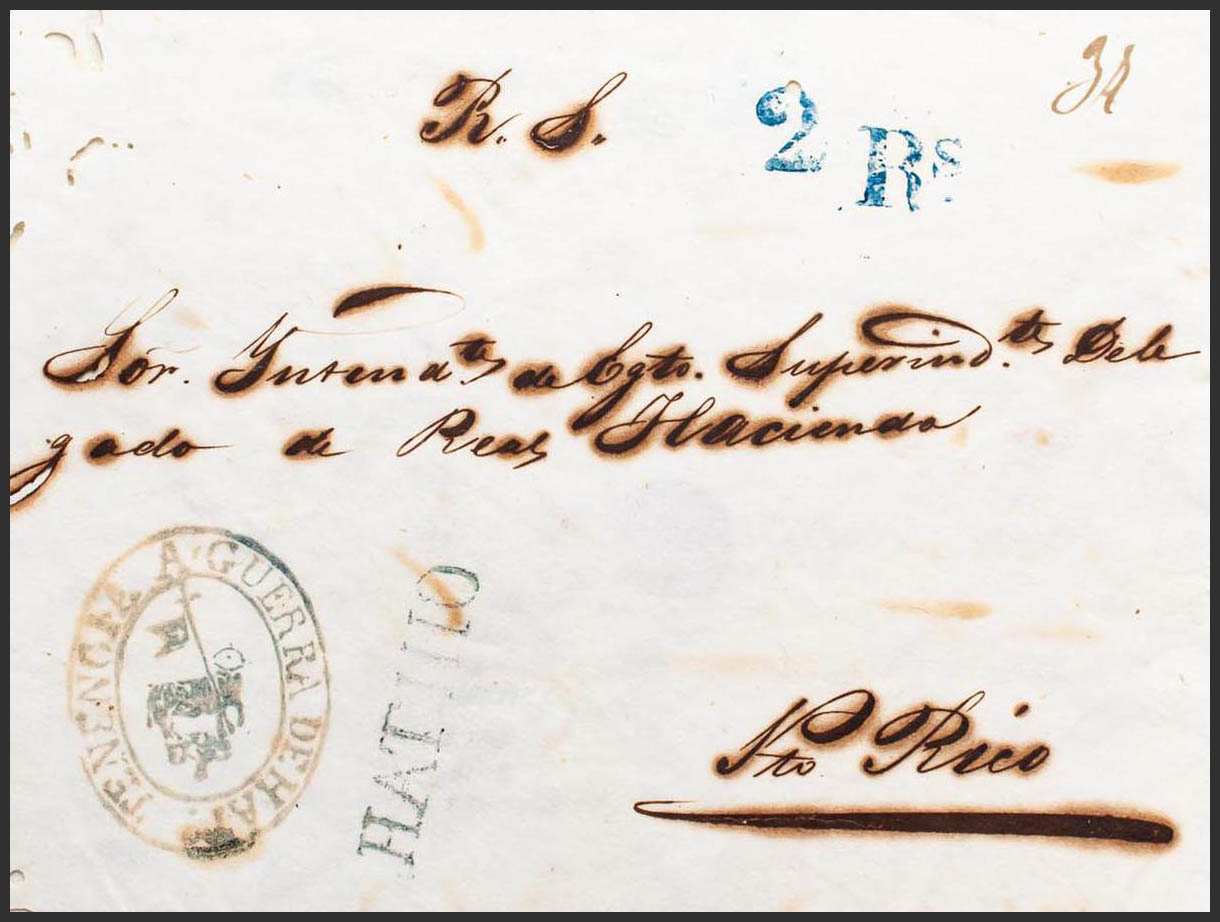 34
R. S.
2 Rs
Sor. Yntendte de Egto. Superindte Dele
gado de Real Hacienda
TENENCIA A GUERRA DE HAT
HATILLO
Pto Rico